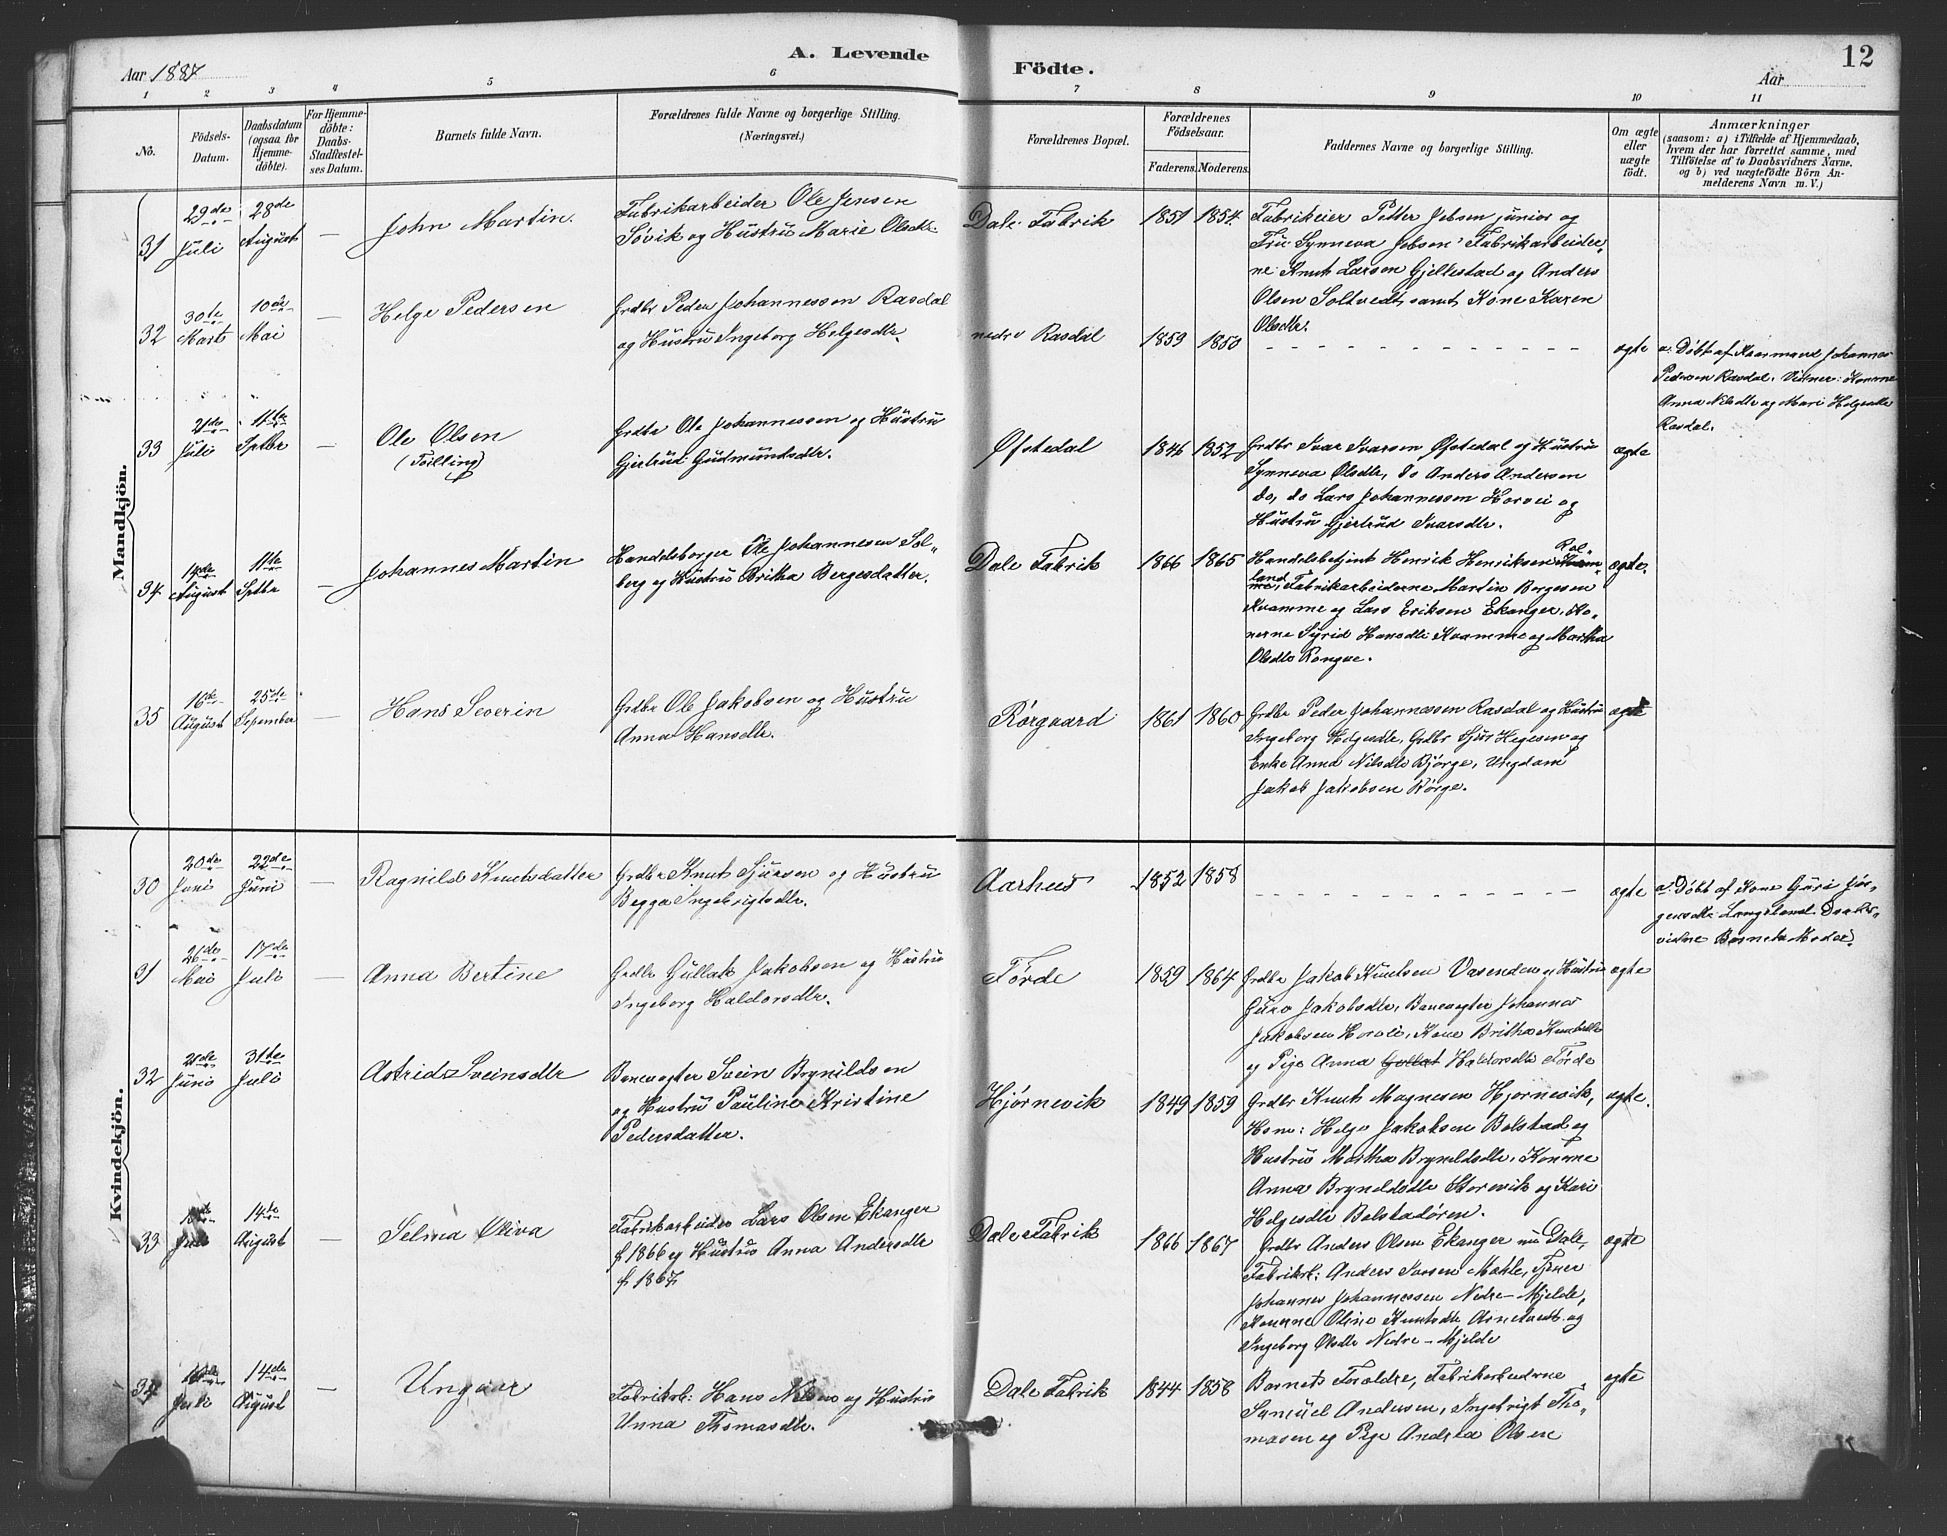 Aar 1887
A. Levende
Födte.
Aar
12
1 2 3 4 5 6 7 8 9 10 11
No.
Födsels-
Datum.
Daabsdatum
(ogsaa for
Hjemme-
döbte).
For Hjemme-
döbte:
Daabs-
Stadfæstel-
ses Datum.
Barnets fulde Navn.
Forældrenes fulde Navne og borgerlige Stilling.
(Næringsvei.)
Forældrenes Bopæl.
Forældrenes
Födselsaar.
Faderens. Moderens.
Faddernes Navne og borgerlige Stilling.
Om ægte
eller
uægte
födt.
Anmærkninger
(saasom: a) i Tilfælde af Hjemmedaab,
hvem der har forrettet samme, med
Tilföielse af to Daabsvidners Navne.
og b) ved uægtefödte Börn An-
melderens Navn m. V.)
Mandkjön.
31
29de
Juli
28de
August
—
John Martin.
Fabrikarbeider Ole Jensen
Søvik og Hustru Marie Olsdtr.
Dale Fabrik
1851 1854.
Fabrikeier Petter Jebsen junior og
Fru Synneva Jebsen, Fabrikarbeider-
ne Knut Larsen Gjellestad og Anders
Olsen Soltvedt, samt Kone Karen
Olsdtr.
32
30te
Marts
10de
Mai
—
Helge Pedersen
Grdbr Peder Johannessen Rasdal
og Hustru Ingeborg Helgesdtr.
nedre Rasdal
1859 1850
ægte
a. Døbt af Kaarmand Johannes
Pedersen Rasdal. Vidner: Konerne
Anna Nilsdtr og Mari Helgesdtr
Rasdal.
33
21de
Juli
11te
Septbr
—
Ole Olsen
(Tvilling)
Grdbr Ole Johannessen og Hustru
Gjertrud Gudmundsdtr.
Øfstedal
1846 1852
Grdbr Ivar Ivarsen Øfstedal og Hustru
Synneva Olsdtr, do Anders Andersen
do, do Lars Johannessen Horvei og
Hustru Gjertrud Ivarsdtr.
ægte
34
14de
August
11te
Septbr
—
Johannes Martin
Handelsborger Ole Johannesen Sol-
berg og Hustru Britha Bergesdatter.
Dale Fabrik
1866 1865
Handelsbetjent Henrik Henriksen Rol-
land, Fabrikarbeiderne Martin Bergesen
Kvamme og Lars Eriksen Ekanger, Ko-
nerne Syrid Hansdtr Kvamme og Martha
Olsdtr Rongve.
ægte.
35
16de
August
25de
September
—
Hans Severin
Grdbr Ole Jakobsen og Hustru
Anna Hansdtr.
Rørgaard
1861 1860
Grdbr Peder Johannessen Rasdal og Hustru
Ingeborg Helgesdtr, Grdbr Sjur Hegesen og
Enke Anna Nilsdtr Bjørge, Ungdom
Jakob Jakobsen Rørge.
ægte
Kvindekjön.
30
20de
Juni
22de
Juni
—
Ragnilde Knutsdatter
Grdbr Knut Sjursen og Hustru
Begga Ingebrigtsdtr.
Aarhus
1852 1858
ægte
a. Døbt af Kone Guri Jør-
gensdtr Langeland. Daabs-
vidne Barnets Moder.
31
26de
Mai
17de
Juli
—
Anna Bertine
Grdbr Gullak Jakobsen og Hustru
Ingeborg Haldorsdtr.
Førde
1859 1864
Grdbr Jakob Knutsen Vasenden og Hustru
Guro Jakobsdtr, Banevogter Johannes
Jakobsen Horvei, Kone Britha Knutsdtr
og Pige Anna Haldorsdtr Førde
ægte
32
21de
Juni
31te
Juli
Astrid Sveinsdtr
Banevogter Svein Brynildsen
og Hustru Pauline Kristine
Pedersdatter.
Hjørnevik
1849 1859
Grdbr Knut Magnesen Hjørnevik,
Hsm: Helge Jakobsen Bolstad og
Hustru Martha Brynildsdtr, Konerne
Anna Brynildsdtr Storevik og Kari
Helgesdtr Bolstadøren.
ægte.
33
Juli
14de
August
—
Selma Oliva
Fabrikarbeider Lars Olsen Ekanger
f. 1866 og Hustru Anna Andersdtr
f. 1867.
Dale Fabrik
1866 1867
Grdbr Anders Olsen Ekanger nu Dale,
Fabrikarb.: Anders Iversen Mahle, Tjener
Johannes Johannessen Nedre-Mjelde,
Konerne Oline Knutsdtr Arnetvedt og
Ingeborg Olsdtr Nedre-Mjelde
ægte
34
Juli
14de
August
—
Fabrikarb.: Hans Nilsen og Hustru
Unna Thomasdtr.
Dale Fabrik
1844 1858
Barnets Forældre, Fabrikarbeiderne
Samuel Andersen, Ingebrigt Tho-
masen og Pige Andrea Olsen
ægte